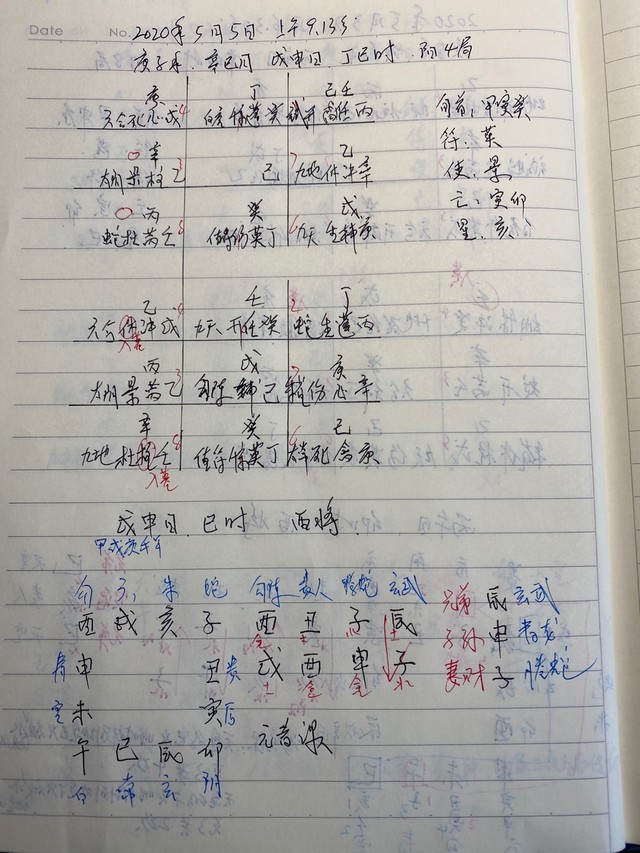 Date No. 2020年5月5日 上午9.13分
庚子年 辛巳月 戊申日 丁巳时 阳4局
庚 丁 己壬
六合死心戊4 癸 丙 旬首:甲寅癸
辛 乙 符:英
景柱乙3 己 九地休冲辛7 使:景
丙 癸 戊 亡:寅卯
蛇杜芮壬8 值符伤英丁 九天生辅庚6 星:亥
乙 壬 丁
六合休冲戊4 九天开任癸 蛇生蓬丙2
入墓
丙 戊 庚
景芮乙3 己 伤心辛7
辛 癸 己
九地杜柱壬8 值符惊英丁 死禽庚6
入墓
戊申日 巳时 酉将
甲戌庚午年
勾 六 朱 蛇 勾陈 贵人 螣蛇 玄武 兄弟 辰 玄武
酉 戌 亥 子 酉 丑 子 辰 子孙 申 青龙
青 申 丑 贵 戌 酉 申 子 妻财 子 螣蛇
空 未 寅 后 元首课
午 巳 辰 卯
白 常 玄 阴